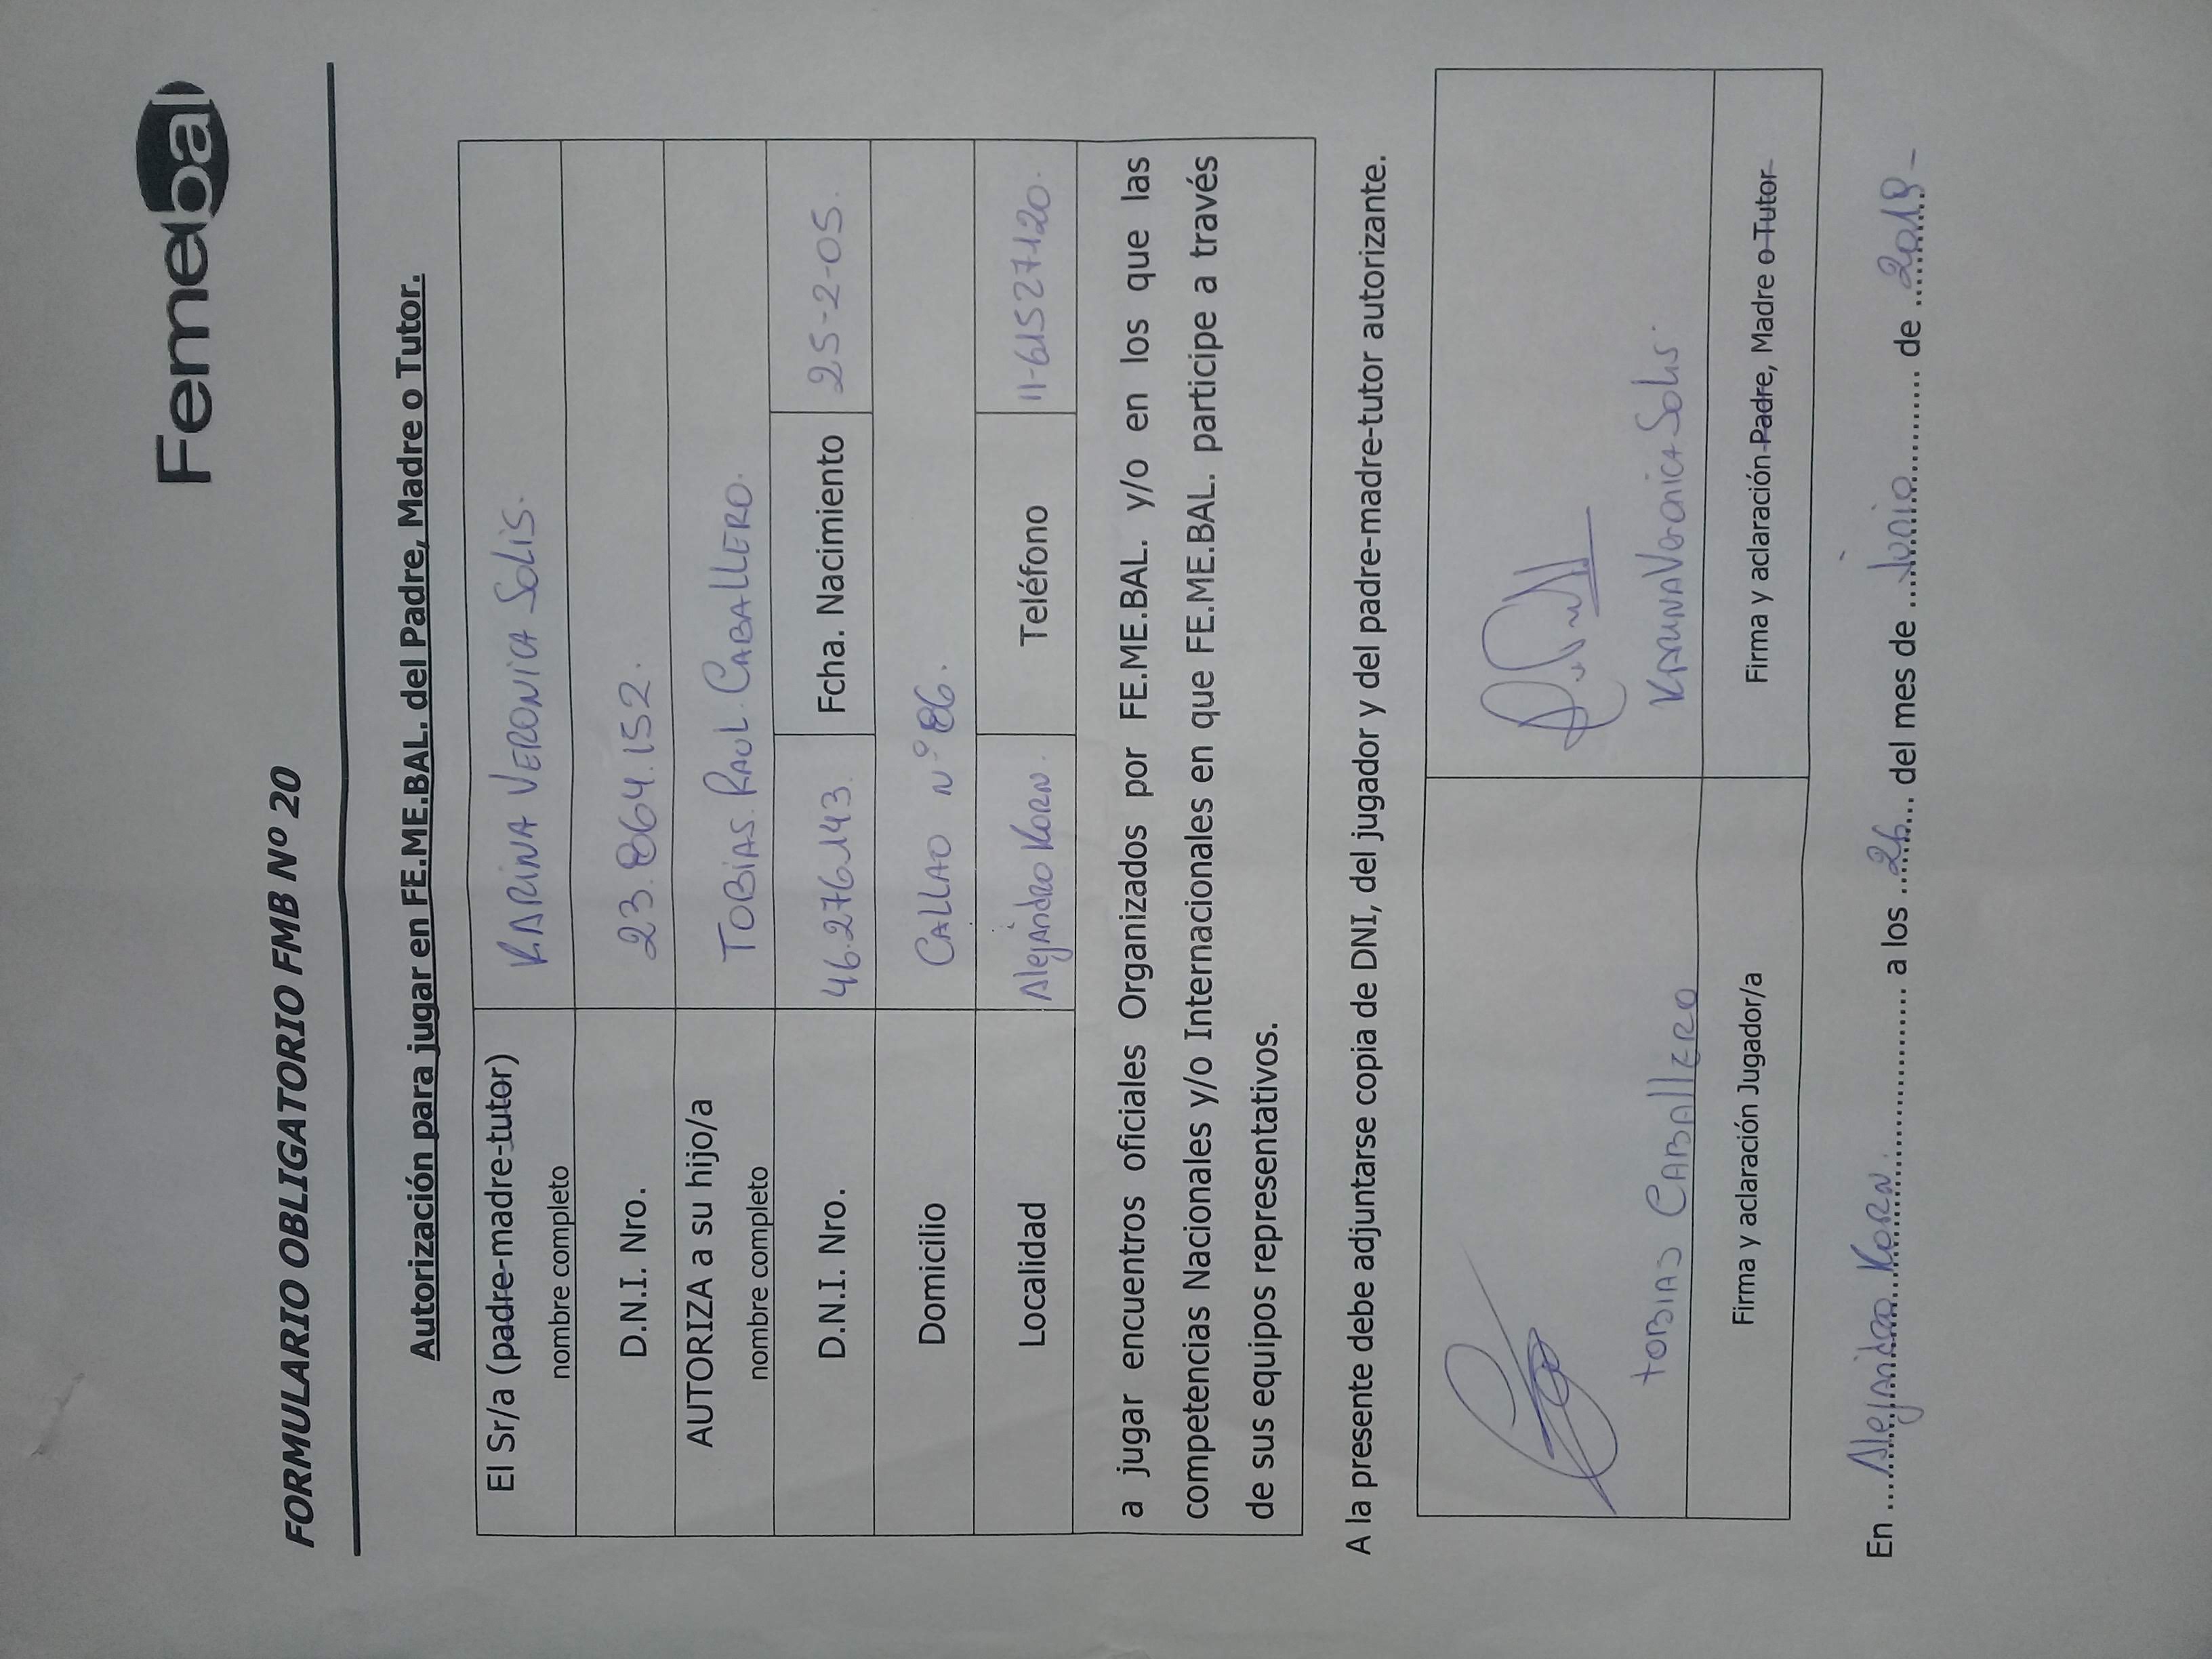 Femebal
FORMULARIO OBLIGATORIO FMB Nº 20
Autorización para jugar en FE.ME.BAL. del Padre, Madre o Tutor.
El Sr/a (padre-madre-tutor) KARINA VERONICA SOLIS.
nombre completo
D.N.I. Nro. 23.864.152.
AUTORIZA a su hijo/a TOBIAS.RAUL.CABALLERO.
nombre completo
D.N.I. Nro. 46.276.143. Fcha. Nacimiento 25-2-05.
Domicilio CALLAO Nº86.
Localidad Alejandro Korn. Teléfono 11-61527120.
a jugar encuentros oficiales Organizados por FE.ME.BAL. y/o en los que las
competencias Nacionales y/o Internacionales en que FE.ME.BAL. participe a través
de sus equipos representativos.
A la presente debe adjuntarse copia de DNI, del jugador y del padre-madre-tutor autorizante.
TOBIAS CABALLERO
KARINA VERONICA SOLIS.
Firma y aclaración Jugador/a
Firma y aclaración Padre, Madre o Tutor
En ...Alejandro Korn... a los ...26... del mes de ...Junio... de ...2019-